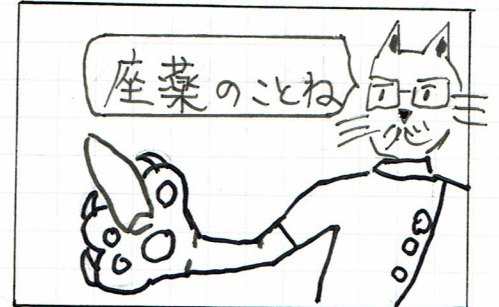 座薬のことね